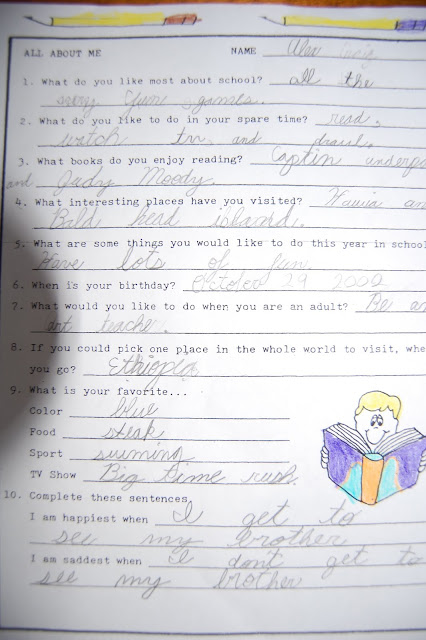 ALL ABOUT ME NAME Alex
1. What do you like most about school? all the
games.
2. What do you like to do in your spare time? read,
watch tv, and draw.
3. What books do you enjoy reading? Captin underpa
and Judy Moody.
4. What interesting places have you visited? an
Bild head island.
5. What are some things you would like to do this year in school
Have lots of fun.
6. When is your birthday? October 29 2002
7. What would you like to do when you are an adult? Be an
art teacher.
8. If you could pick one place in the whole world to visit, whe
you go? Ethiopia
9. What is your favorite...
Color blue
Food steak
Sport suiming
TV Show Big time rush.
10. Complete these sentences.
I am happiest when I get to
see my brother
I am saddest when I don't get to
see my brother